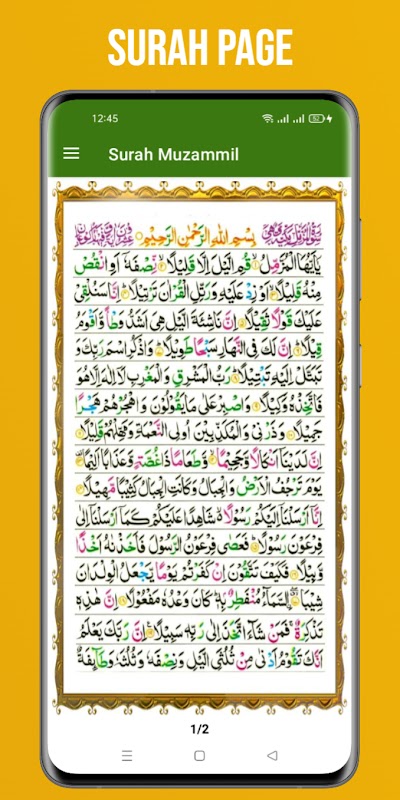 SURAH PAGE
12:45
52
Surah Muzammil
بِسْمِ اللهِ الرَّحْمٰنِ الرَّحِيْمِ
يٰۤاَيُّهَا الْمُزَّمِّلُ ۙ۱ قُمِ الَّيْلَ اِلَّا قَلِيْلًا ۙ۲ نِّصْفَهٗۤ اَوِ انْقُصْ
مِنْهُ قَلِيْلًا ۙ۳ اَوْ زِدْ عَلَيْهِ وَرَتِّلِ الْقُرْاٰنَ تَرْتِيْلًا ؕ۴ اِنَّا سَنُلْقِيْ
عَلَيْكَ قَوْلًا ثَقِيْلًا ۵ اِنَّ نَاشِئَةَ الَّيْلِ هِيَ اَشَدُّ وَطْاً وَّاَقْوَمُ
قِيْلًا ؕ۶ اِنَّ لَكَ فِي النَّهَارِ سَبْحًا طَوِيْلًا ؕ۷ وَاذْكُرِ اسْمَ رَبِّكَ وَ
تَبَتَّلْ اِلَيْهِ تَبْتِيْلًا ؕ۸ رَبُّ الْمَشْرِقِ وَالْمَغْرِبِ لَاۤ اِلٰهَ اِلَّا هُوَ
فَاتَّخِذْهُ وَكِيْلًا ۹ وَاصْبِرْ عَلٰى مَا يَقُوْلُوْنَ وَاهْجُرْهُمْ هَجْرًا
جَمِيْلًا ۱۰ وَذَرْنِيْ وَالْمُكَذِّبِيْنَ اُولِي النَّعْمَةِ وَمَهِّلْهُمْ قَلِيْلًا ۱۱
اِنَّ لَدَيْنَاۤ اَنْكَالًا وَّجَحِيْمًا ۙ۱۲ وَّطَعَامًا ذَا غُصَّةٍ وَّعَذَابًا اَلِيْمًا ۱۳
يَوْمَ تَرْجُفُ الْاَرْضُ وَالْجِبَالُ وَكَانَتِ الْجِبَالُ كَثِيْبًا مَّهِيْلًا ۱۴
اِنَّاۤ اَرْسَلْنَاۤ اِلَيْكُمْ رَسُوْلًا شَاهِدًا عَلَيْكُمْ كَمَاۤ اَرْسَلْنَاۤ اِلٰى
فِرْعَوْنَ رَسُوْلًا ؕ۱۵ فَعَصٰى فِرْعَوْنُ الرَّسُوْلَ فَاَخَذْنٰهُ اَخْذًا
وَّبِيْلًا ۱۶ فَكَيْفَ تَتَّقُوْنَ اِنْ كَفَرْتُمْ يَوْمًا يَّجْعَلُ الْوِلْدَانَ
شِيْبَا ۱۷ السَّمَآءُ مُنْفَطِرٌۢ بِهٖ كَانَ وَعْدُهٗ مَفْعُوْلًا ۱۸ اِنَّ هٰذِهٖ
تَذْكِرَةٌ فَمَنْ شَآءَ اتَّخَذَ اِلٰى رَبِّهٖ سَبِيْلًا ۱۹ اِنَّ رَبَّكَ يَعْلَمُ
اَنَّكَ تَقُوْمُ اَدْنٰى مِنْ ثُلُثَيِ الَّيْلِ وَنِصْفَهٗ وَثُلُثَهٗ وَطَآئِفَةٌ
1/2